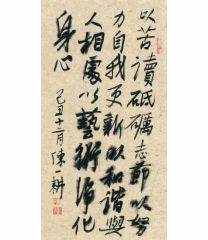 以苦讀砥礪志節以努
力自我更新以和諧與
人相處以藝術淨化
身心
己丑十二月陳一耕